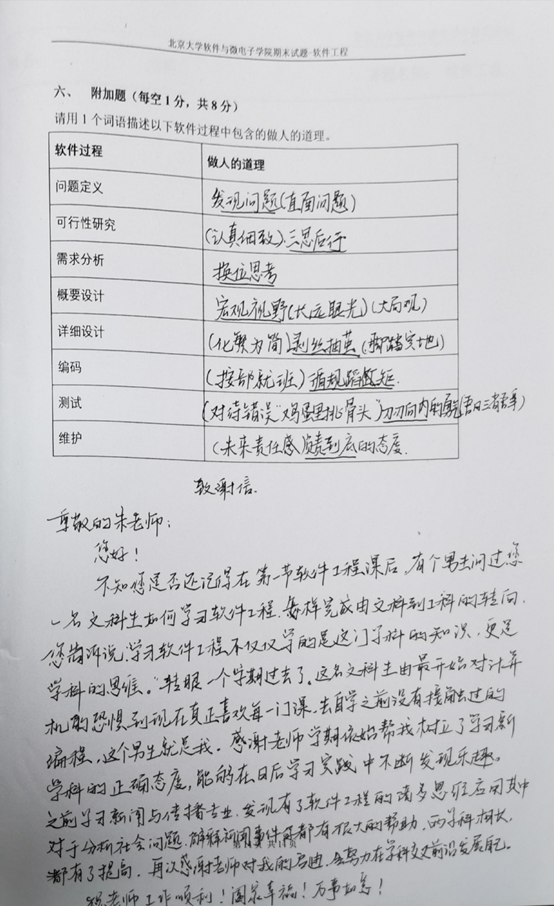 北京大学软件与微电子学院期末试题-软件工程
六、 附加题（每空1分，共8分）
请用1个词语描述以下软件过程中包含的做人的道理。
软件过程 做人的道理
问题定义 发现问题(直面问题)
可行性研究 (认真细致).三思后行
需求分析 换位思考
概要设计 宏观视野(长远眼光)(大局观)
详细设计 (化繁为简)剥丝抽茧(脚踏实地)
编码 (按部就班)循规蹈矩.
测试 (对待错误"鸡蛋里挑骨头")刀刃向内的勇气(吾日三省吾身)
维护 (未来责任感 负责到底的态度.
致谢信.
尊敬的朱老师:
您好!
不知您是否还记得在第一节软件工程课后,有个男生问过您
一名文科生如何学习软件工程.怎样完成由文科到工科的转向.
您告诉说,学习软件工程不仅仅学的是这门学科的知识,更是
学科的思维。"转眼一个学期过去了。这名文科生由最开始对计算
机的恐惧到现在真正喜欢每一门课.去自学之前没有接触过的
编程,这个男生就是我。感谢老师学期伊始帮我树立了学习新
学科的正确态度,能够在日后学习实践中不断发现乐趣。
之前学习新闻与传播专业,发现有了软件工程的诸多思维应用其中
对于分析社会问题,解释新闻事件都有很大的帮助,两学科相长,
都有了提高.再次感谢老师对我的 努力在学科交叉前沿发展
祝老师工作顺利!阖家幸福!万事如意!